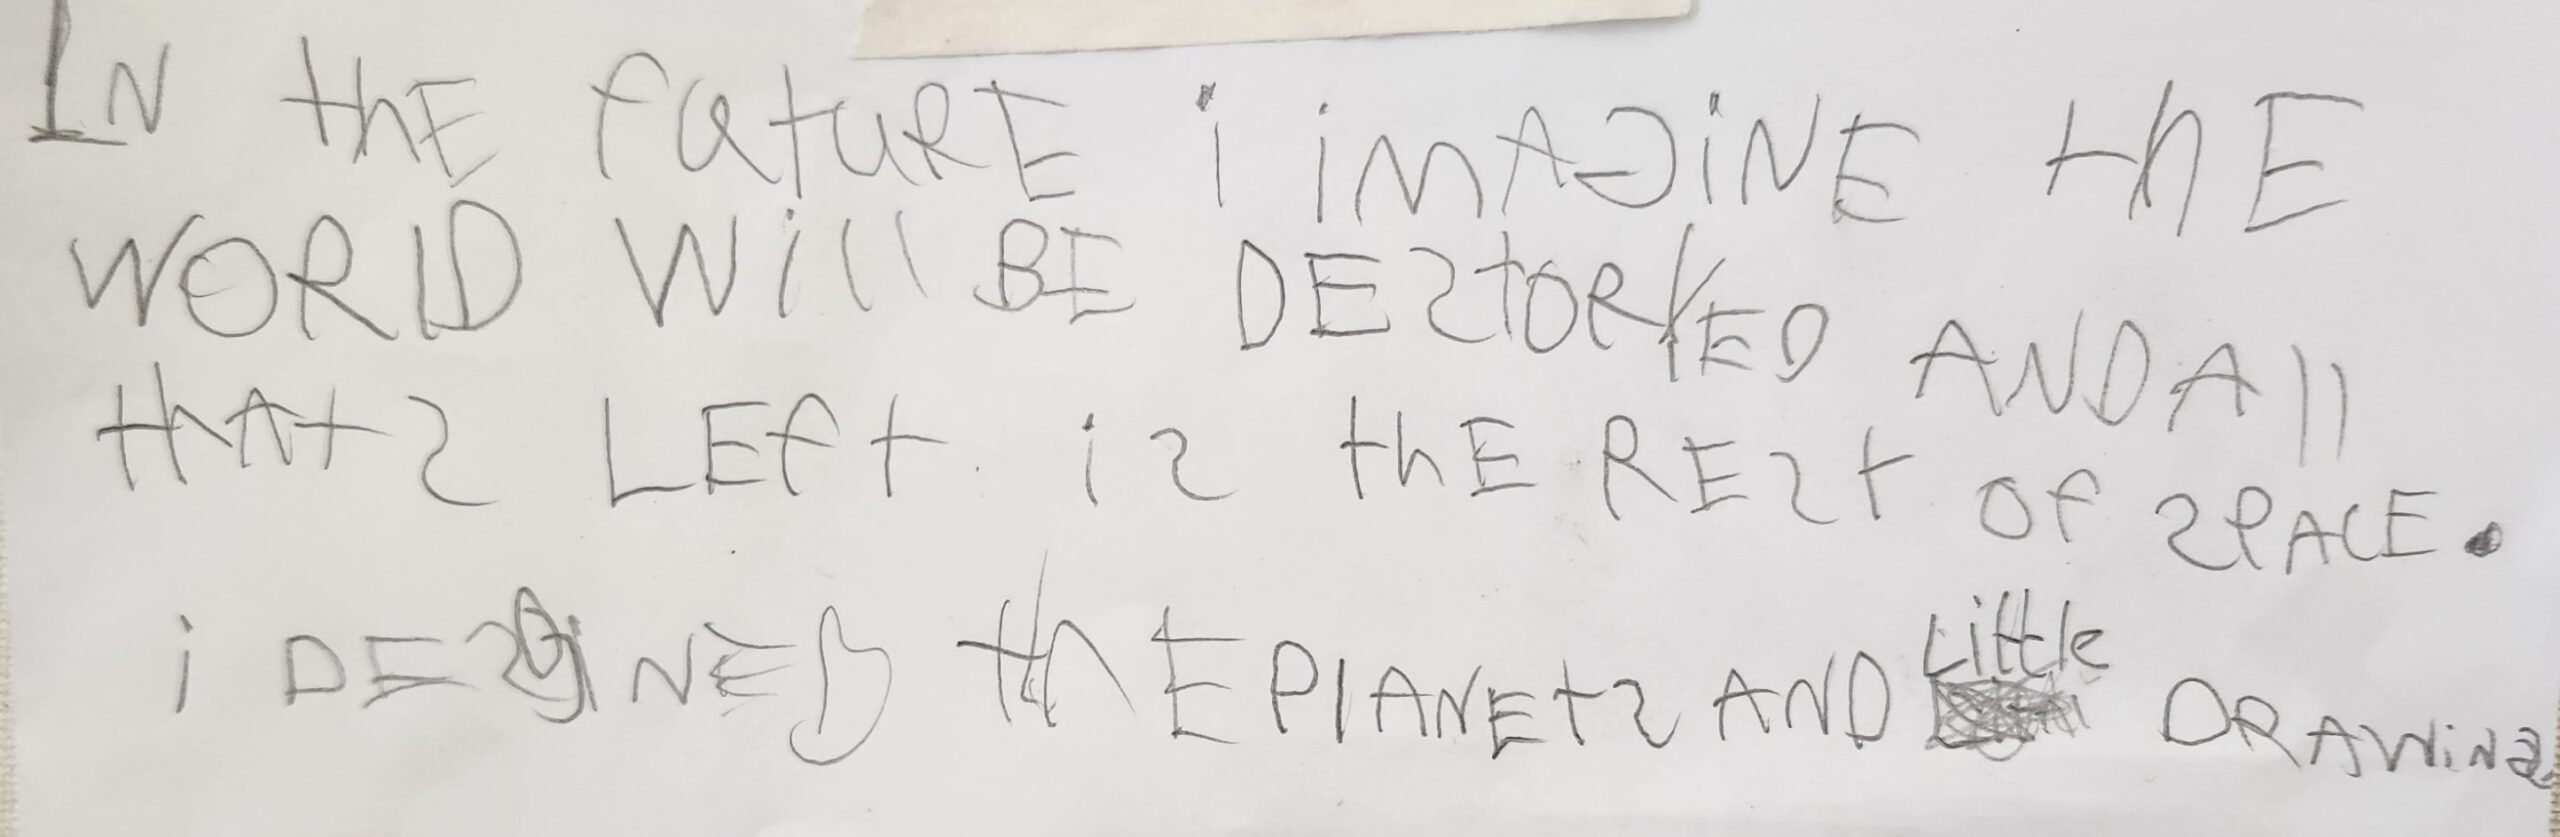 IN thE fUturE i imAginE thE
WORlD Will BE DEstORYED AND All
thAts LEft is thE REst Of sPACE.
i DEsgiNED thE PlANEts AND Little DRAWiNg